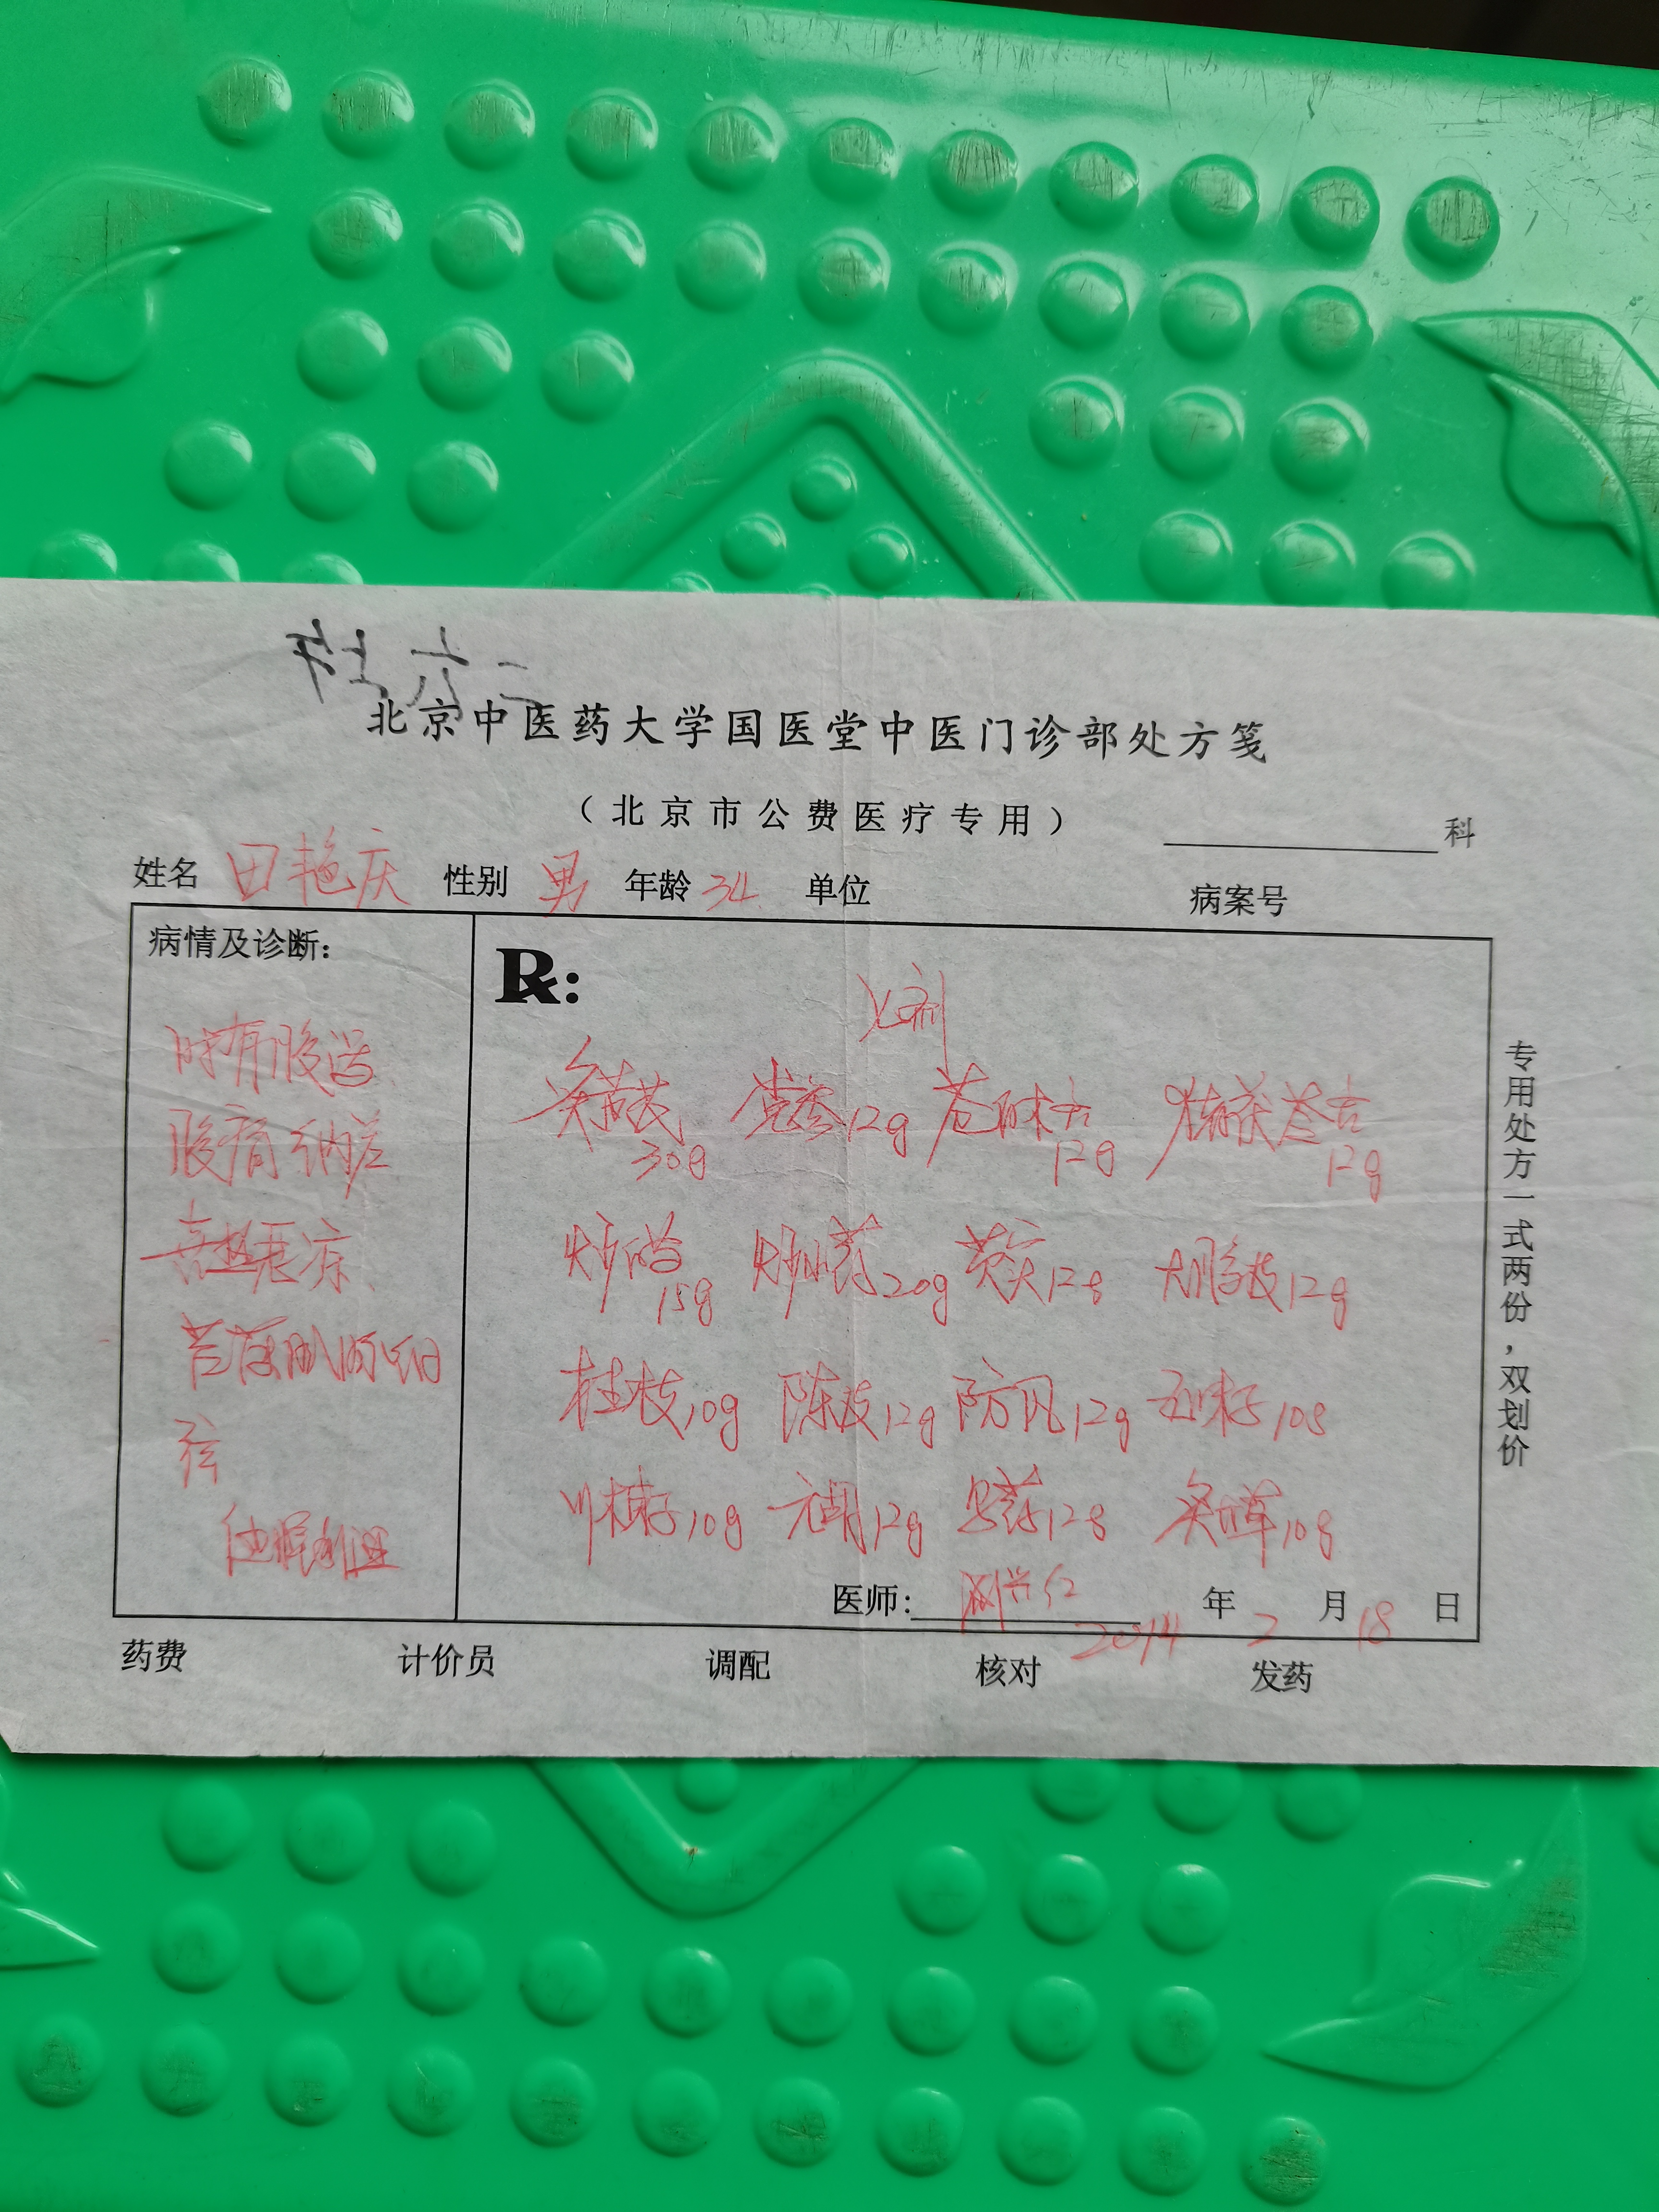 北京中医药大学国医堂中医门诊部处方笺
（北京市公费医疗专用）
科
姓名 田艳庆 性别 男 年龄 34 单位 病案号
病情及诊断：
时有腹泻
腹痛 纳差
喜热恶凉、
苔薄 脉细
弦
R:
七剂
炙黄芪 30g 党参 12g 苍白术各 12g 猪茯苓各 12g
15g 炒山药 20g 芡实 12g 大腹皮 12g
桂枝 10g 陈皮 12g 防风 12g 五味子 10g
川楝子 10g 元胡 12g 乌药 12g 炙甘草 10g
医师： 2014 年 2 月 18 日
药费 计价员 调配 核对 发药
专用处方一式两份，双划价